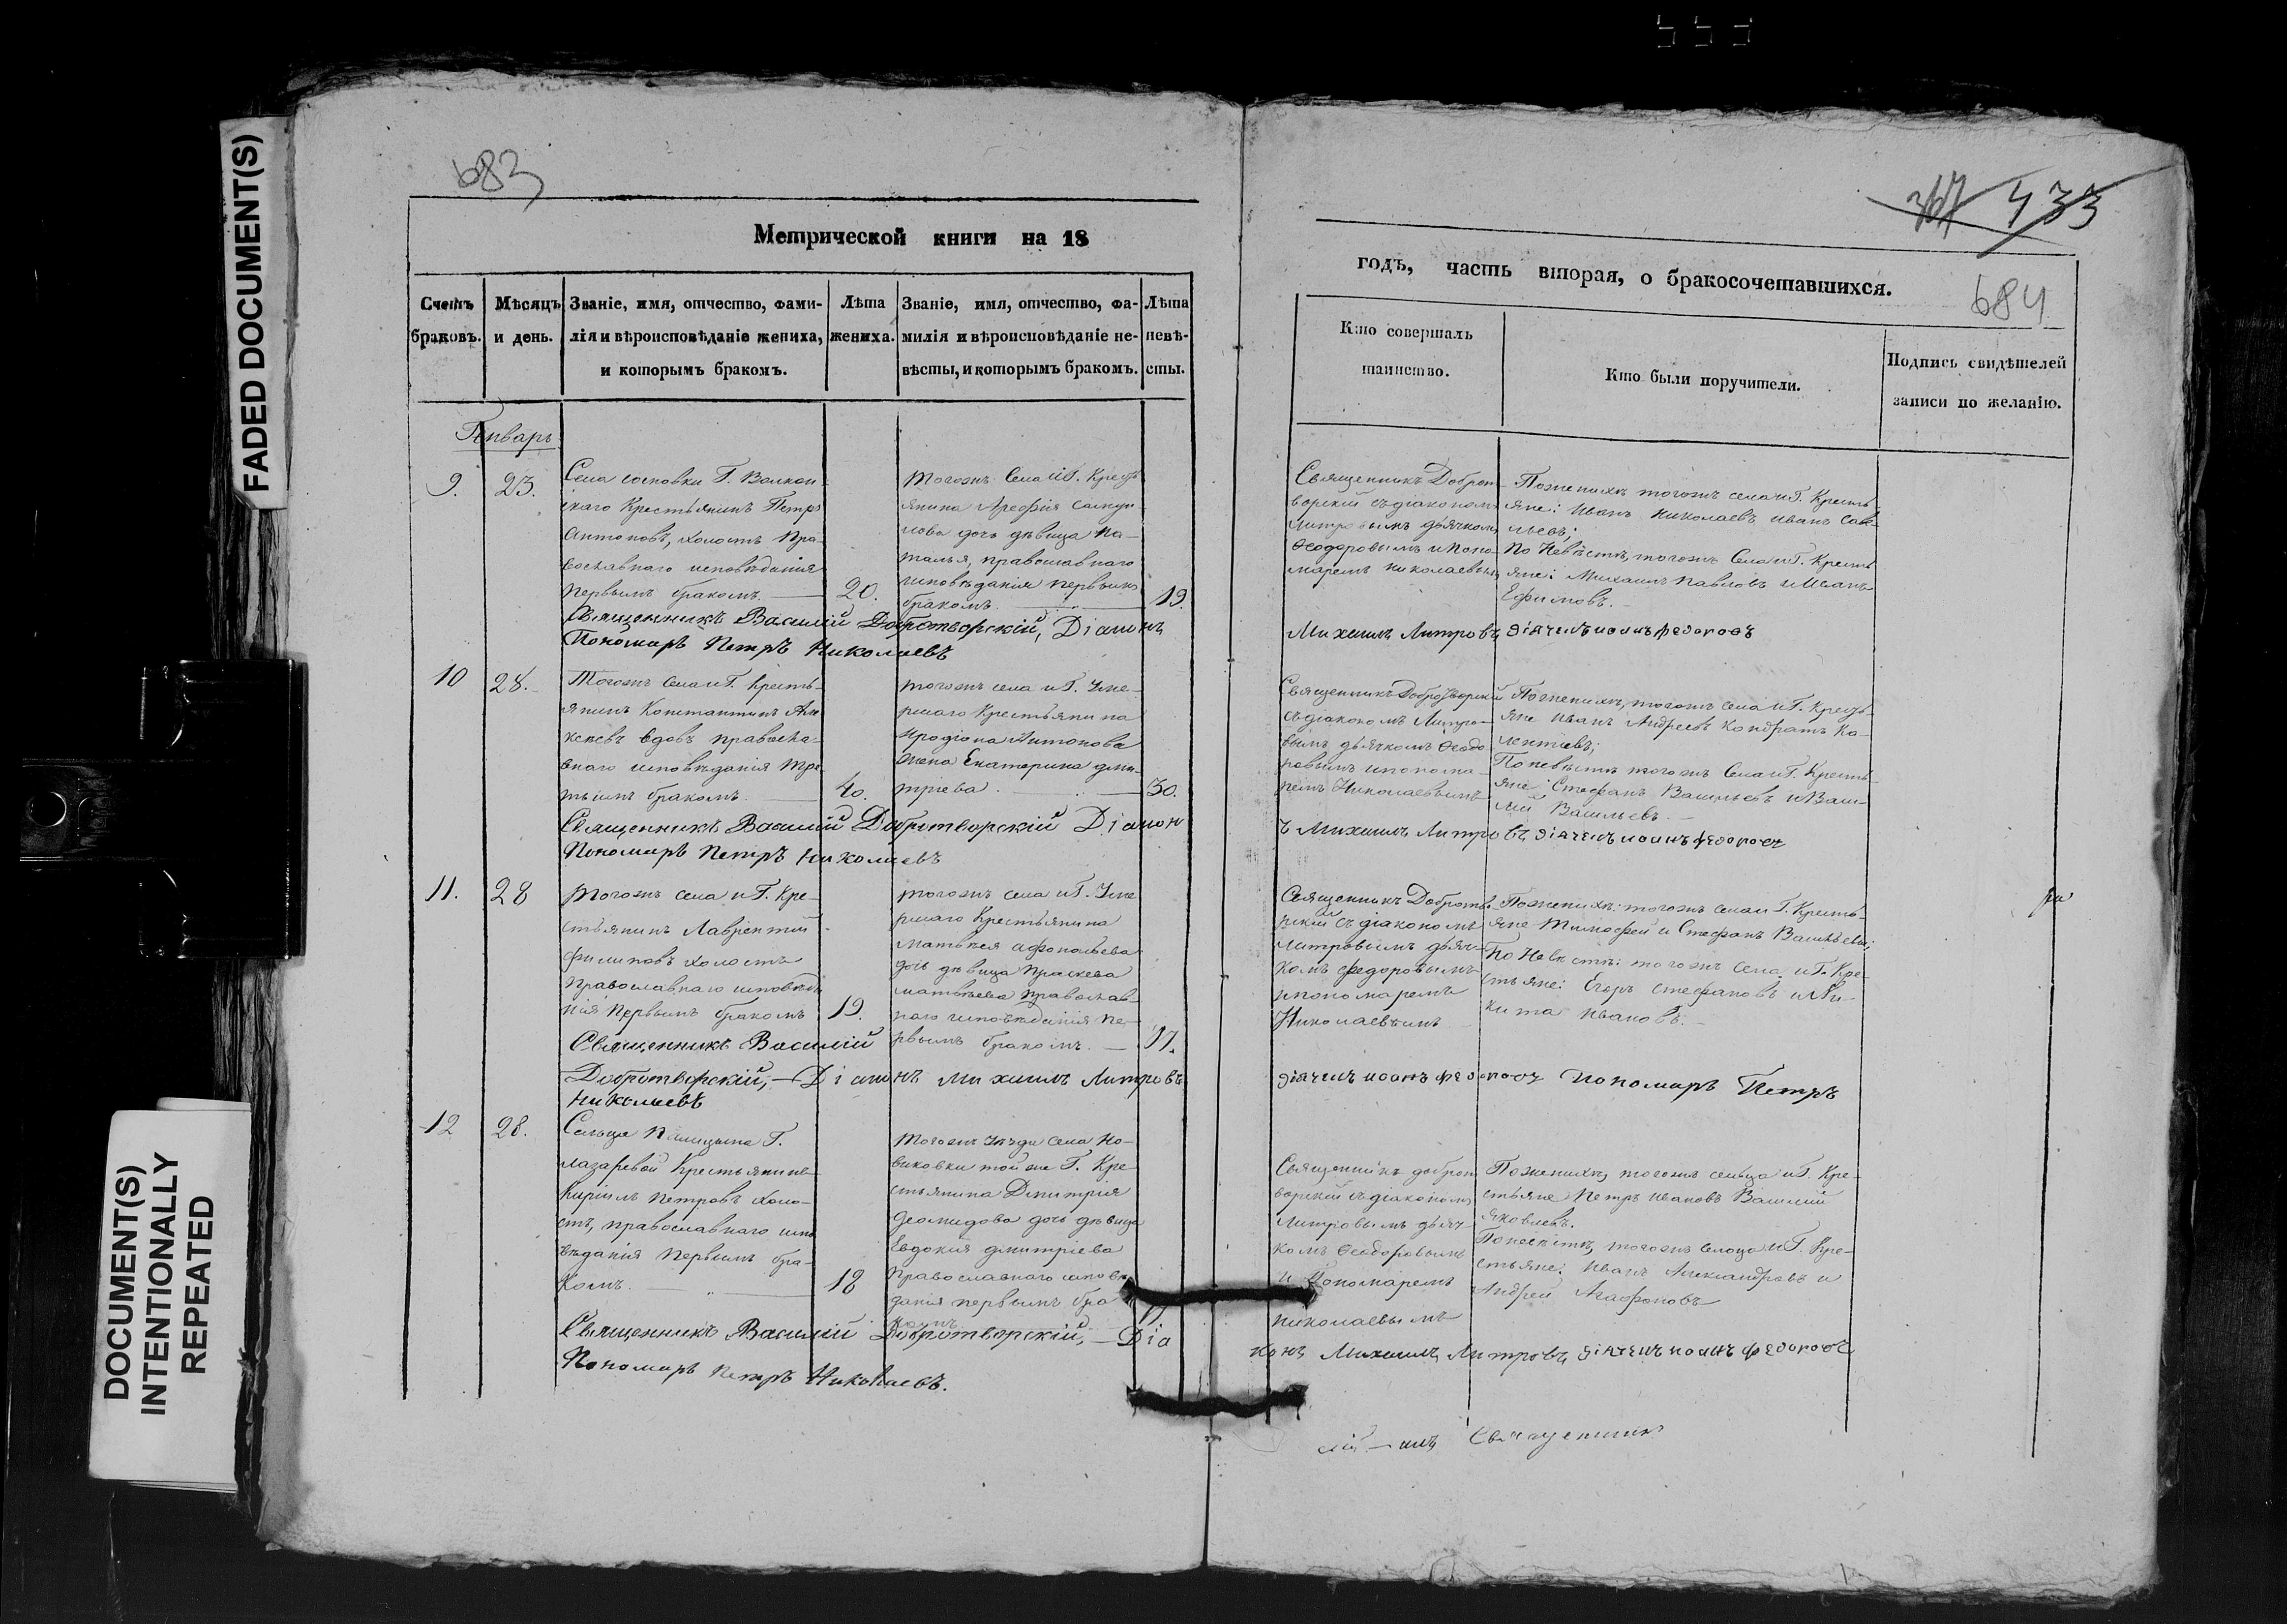 FADED DOCUMENT(S)
DOCUMENT(S)
INTENTIONALLY
REPEATED
683
Метрической книги на 18
Счетъ браковъ.
Мѣсяцъ и день.
Званіе, имя, отчество, фами-
лія и вѣроисповѣданіе жениха,
и которымъ бракомъ.
Лѣта
жениха.
Званіе, имя, отчество, фа-
милія и вѣроисповѣданіе не-
вѣсты, и которымъ бракомъ.
Лѣта
невѣ-
сты.
Январь
9.
23.
Села сосновки Г. Волкон
скаго Крестьянинъ Петръ
Антоновъ, холостъ Пра-
вославнаго исповѣданія
первымъ бракомъ.
20.
Тогожъ Села и Г. Кресть
янина Арефія
дочь дѣвица На-
талья, православнаго
исповѣданія первымъ
бракомъ.
19.
Священникъ Василій Добротворскій, Діаконъ
Пономарь Петръ Николаевъ
10
28.
Тогожъ Села и Г. Кресть-
янинъ Константинъ Але
ксеевъ вдовъ правосла-
внаго исповѣданія Тре-
тьимъ бракомъ.
40.
тогожъ села и Г. Уме-
ршаго Крестьянина
Иродіона Антонова
жена Екатерина дми-
тріева.
30.
Священникъ Василій Добротворскій Діакон
Пономарь Петръ Николаевъ
11.
28
тогожъ села и Г. Кре-
стьянинъ Лаврентій
Филиповъ холостъ
православнаго исповѣда
нія Первымъ бракомъ
19.
тогожъ села и Г. Уме
ршаго Крестьянина
Матвѣя Афонасьева
дочь дѣвица Праскева
матвѣева Православ-
наго исповѣданія пе-
рвымъ бракомъ.
17.
Священникъ Василій
Добротворскій, – Діаконъ Михаилъ Митровъ
Николаевъ
12
28.
Сельца Палицына Г.
Лазаревой Крестьянинъ
Кирилъ Петровъ холо-
стъ, православнаго испо
вѣданія Первымъ бра-
комъ.
18
Тогожъ уѣзда Села Но-
виковки той же Г. Кре
стьянина Дмитрія
Деомидова дочь дѣвица
Евдокия дмитріева
Православнаго исповѣ
данія первымъ бра
комъ
17
Священникъ Василій Добротворскій, – Діа
Пономарь Петръ Николаевъ.
367 433
годъ, часть вторая, о бракосочетавшихся.
684
Кто совершалъ
таинство.
Кто были поручители.
Подпись свидѣтелей
записи по желанію.
Священникъ Доброт-
ворскій съ діакономъ
Митровымъ дьячкомъ
Ѳеодоровымъ и Поно-
маремъ Николаевымъ
По женихѣ тогожъ села и Г. Кресть
яне: Иванъ Николаевъ Иванъ Саве-
льевъ;
По Невѣстѣ, тогожъ Села и Г. Кресть
яне: Михаилъ Павловъ и Иванъ
Ефимовъ.
Михаилъ Митровъ діячекъ иоанъ федоровъ
Священникъ Добротворскій
съ діакономъ Митро-
вымъ дьячкомъ Ѳеодо-
ровымъ и понома-
ремъ Николаевымъ
По женихѣ, тогожъ села и Г. Кресть-
яне Иванъ Андреевъ Кондратъ Ка-
лентіевъ;
По невѣстѣ тогожъ Села и Г. Кресть-
яне: Стефанъ Васильевъ и Васи-
лій Васильевъ.
ъ Михаилъ Митровъ діячекъ иоанъ федоровъ
Священникъ Добротво-
рскій съ діакономъ
Митровымъ дьяч-
комъ федоровымъ
и пономаремъ
Николаевымъ
По женихѣ: тогожъ села и Г. Кресть-
яне Тимофей и Стефанъ Васильевы;
По Невѣстѣ: тогожъ Села и Г. Кре-
стьяне: Егоръ Стефановъ и Ни-
кита Ивановъ.
діячекъ иоанъ федоровъ Пономарь Петръ
Священникъ доброт
ворскій съ діакономъ
Митровымъ дьяч-
комъ Ѳеодоровымъ
и Пономаремъ
николаевымъ
По женихѣ, тогожъ сельца и Г. Кре-
стьяне Петръ Ивановъ Василій
Яковлевъ.
По невѣстѣ, тогожъ сельца и Г. Кре-
стьяне: Иванъ Александровъ и
Андрей Агафоновъ
конъ Михаилъ Митровъ діячекъ иоанъ федоровъ
Священник